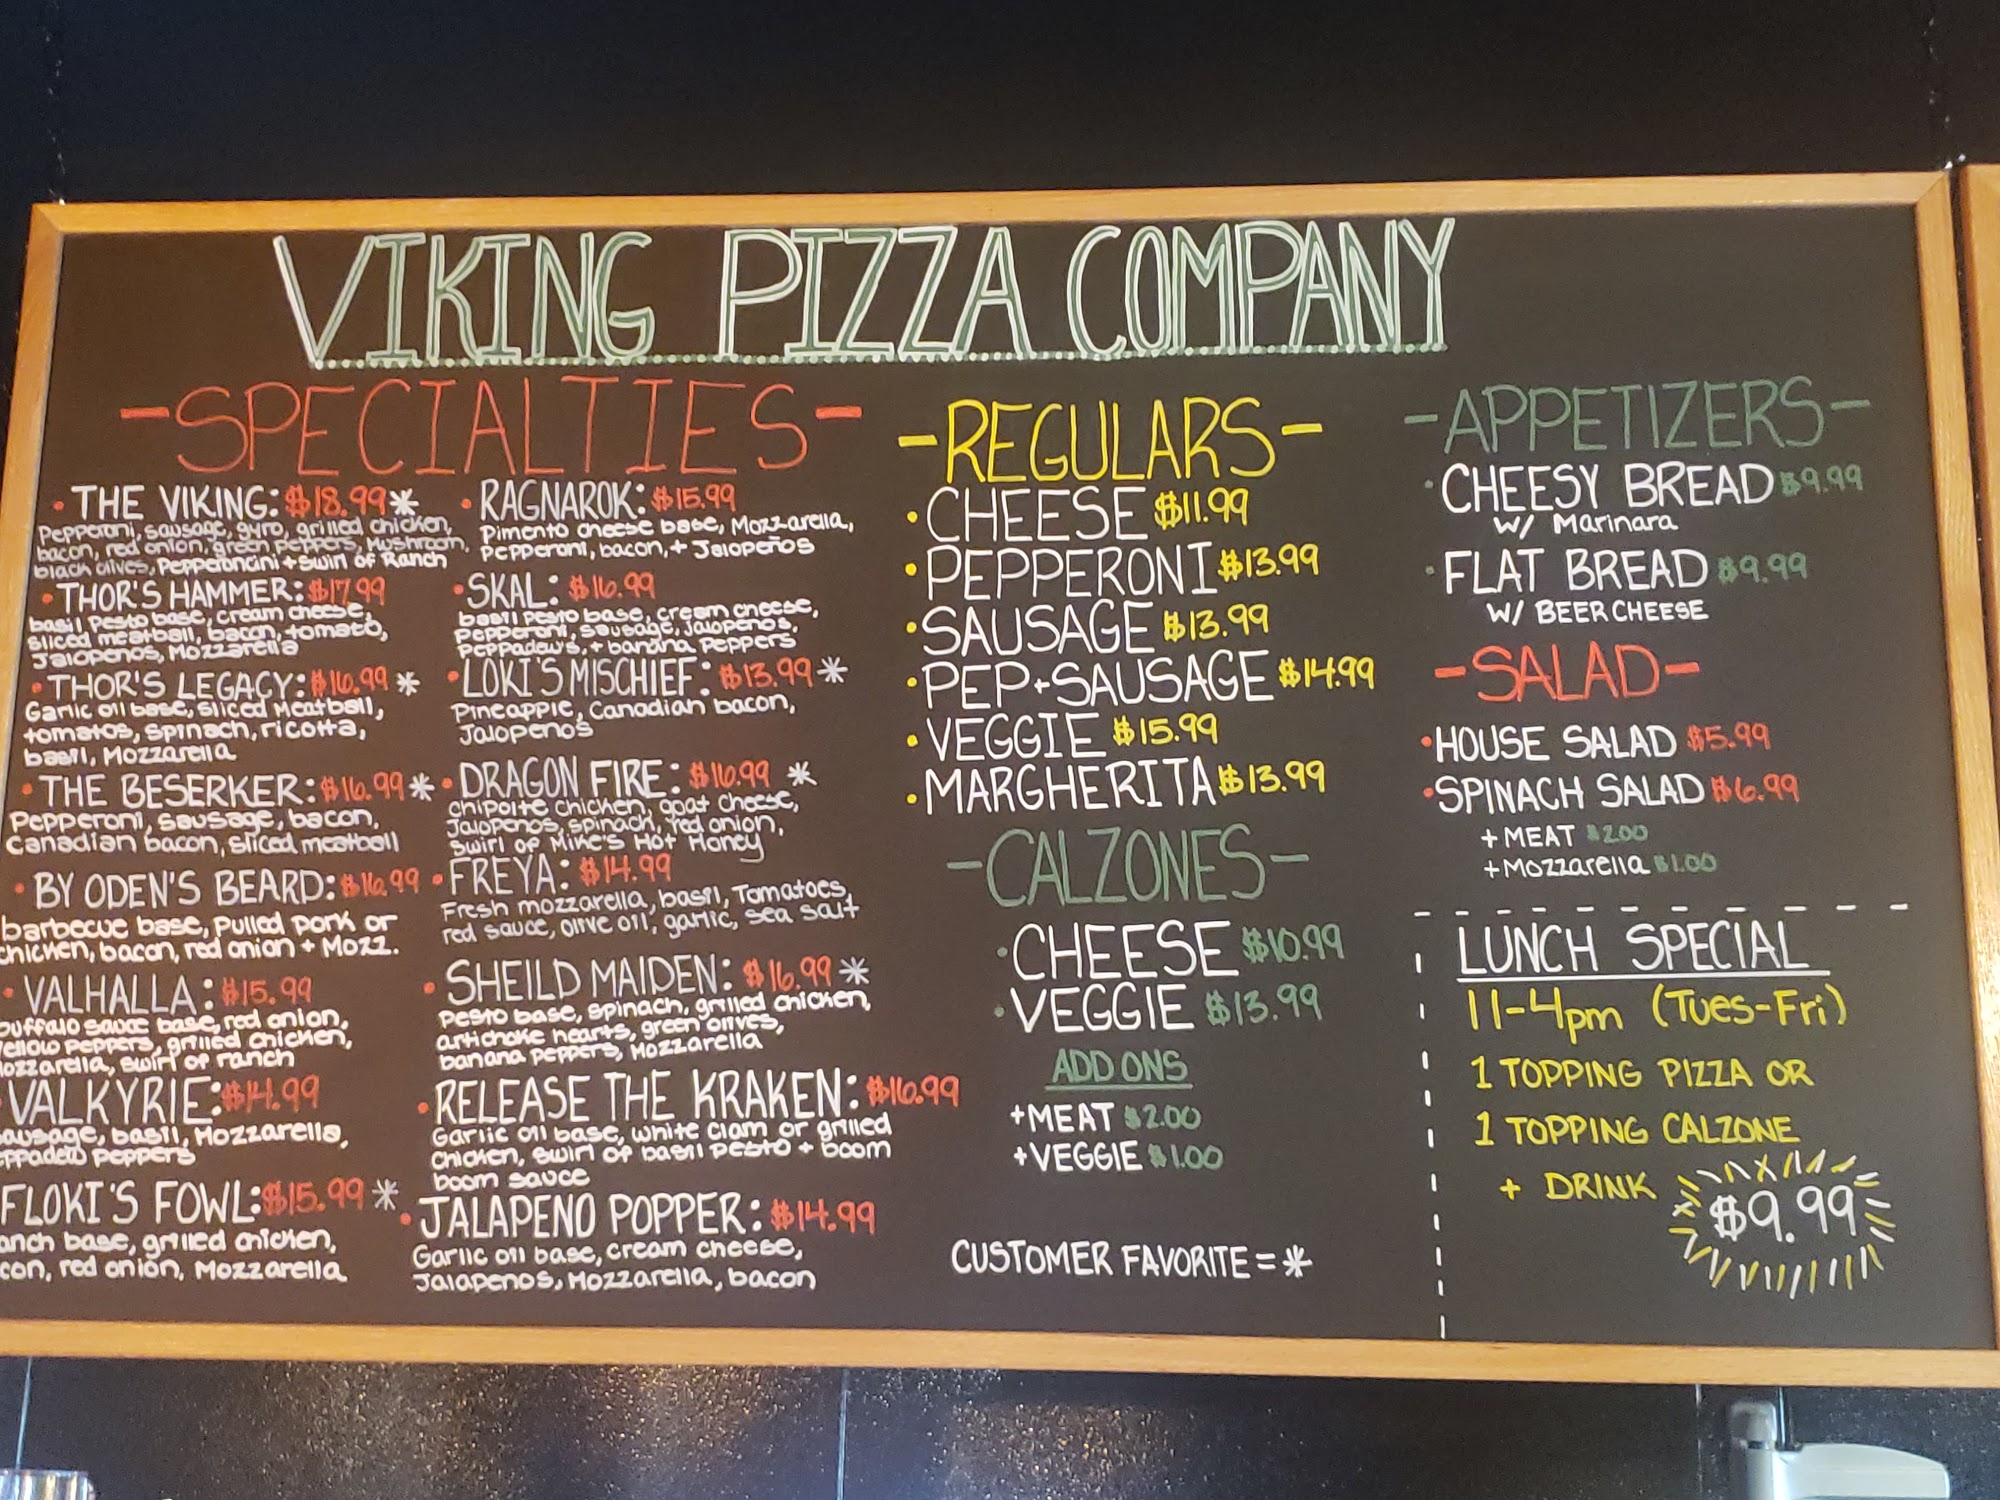 VIKING PIZZA COMPANY
-SPECIALTIES-
• THE VIKING: $18.99 *
Pepperoni, sausage, gyro, grilled chicken,
bacon, red onion, green peppers, Mushroom,
black olives, Pepperoncini + swirl of Ranch
• THOR'S HAMMER: $17.99
basil Pesto base, cream cheese,
sliced meatball, bacon, tomato,
Jalopenos, Mozzarella
• THOR'S LEGACY: $16.99 *
Garlic oil base, sliced Meatball,
tomatos, spinach, ricotta,
basil, Mozzarella
• THE BESERKER: $16.99 *
Pepperoni, sausage, bacon,
Canadian bacon, sliced meatball
• BY ODEN'S BEARD: $16.99
barbecue base, Pulled pork or
chicken, bacon, red onion + Mozz.
• VALHALLA: $15.99
buffalo sauce base, red onion,
yellow peppers, grilled chicken,
mozzarella, swirl of ranch
VALKYRIE: $14.99
sausage, basil, Mozzarella,
ppadew peppers
FLOKI'S FOWL: $15.99 *
anch base, grilled chicken,
con, red onion, Mozzarella
• RAGNAROK: $15.99
Pimento cheese base, Mozzarella,
Pepperoni, bacon, + Jalopeños
• SKAL: $16.99
basil Pesto base, cream cheese,
Pepperoni, sausage, jalopenos,
Peppadew's, + banana Peppers
• LOKI'S MISCHIEF: $13.99 *
Pineapple, Canadian bacon,
Jalopenos
• DRAGON FIRE: $16.99 *
chipolte chicken, goat cheese,
Jalopenos, spinach, red onion,
swirl of Mike's Hot Honey
• FREYA: $14.99
Fresh mozzarella, basil, Tomatoes,
red sauce, olive oil, garlic, sea salt
• SHEILD MAIDEN: $16.99 *
Pesto base, spinach, grilled chicken,
artichoke hearts, green olives,
banana peppers, Mozzarella
• RELEASE THE KRAKEN: $16.99
Garlic oil base, white clam or grilled
chicken, swirl of basil pesto + boom
boom sauce
• JALAPENO POPPER: $14.99
Garlic oil base, cream cheese,
Jalapenos, Mozzarella, bacon
-REGULARS-
• CHEESE $11.99
• PEPPERONI $13.99
• SAUSAGE $13.99
• PEP+SAUSAGE $14.99
• VEGGIE $15.99
• MARGHERITA $13.99
-CALZONES-
• CHEESE $10.99
• VEGGIE $13.99
ADD ONS
+MEAT $2.00
+VEGGIE $1.00
CUSTOMER FAVORITE = *
-APPETIZERS-
• CHEESY BREAD $9.99
W/ Marinara
• FLAT BREAD $9.99
W/ BEER CHEESE
-SALAD-
• HOUSE SALAD $5.99
• SPINACH SALAD $6.99
+MEAT $2.00
+Mozzarella $1.00
LUNCH SPECIAL
11-4pm (Tues-Fri)
1 TOPPING PIZZA OR
1 TOPPING CALZONE
+ DRINK $9.99